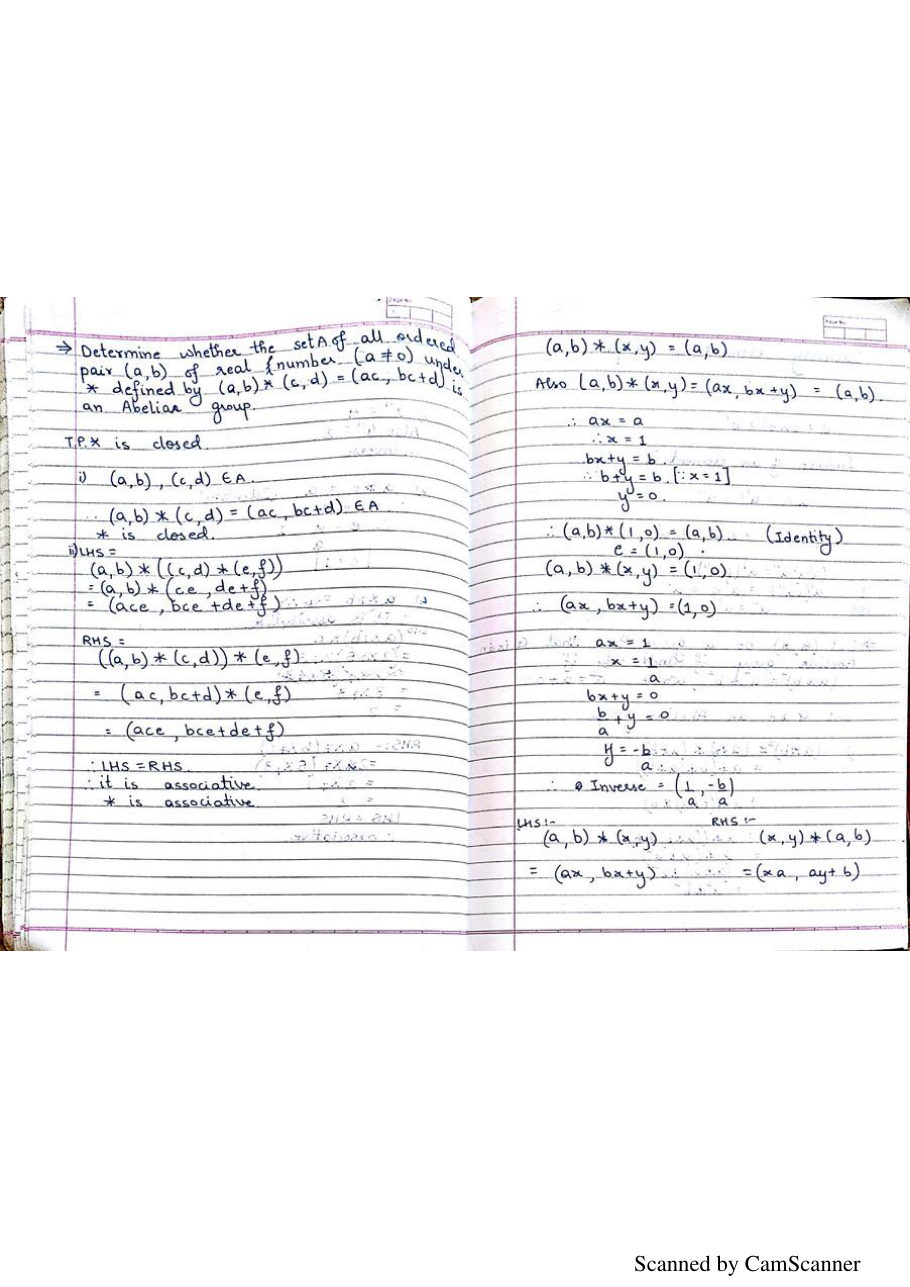 ⇒ Determine whether the set A of all ordered
pair (a,b) of real number (a ≠ 0) under
* defined by (a,b) * (c,d) = (ac, bc+d) is
an Abelian group.
T.P. * is closed.
i) (a,b), (c,d) ∈ A.
∴ (a,b) * (c,d) = (ac, bc+d) ∈ A
* is closed.
ii) LHS =
(a,b) * ((c,d) * (e,f))
= (a,b) * (ce, de+f)
= (ace, bce + de + f)
RHS =
((a,b) * (c,d)) * (e,f)
= (ac, bc+d) * (e,f)
= (ace, bce+de+f)
∴ LHS = RHS
∴ it is associative.
* is associative.
(a,b) * (x,y) = (a,b)
Also (a,b) * (x,y) = (ax, bx+y) = (a,b).
∴ ax = a
∴ x = 1
bx+y = b.
∴ b+y = b. [∵ x = 1]
y = 0.
∴ (a,b) * (1,0) = (a,b) (Identity)
e = (1,0).
(a,b) * (x,y) = (1,0)
∴ (ax, bx+y) = (1,0)
ax = 1
x = 1/a
bx+y = 0
b/a + y = 0
y = -b/a
∴ Inverse = (1/a, -b/a)
LHS :- RHS :-
(a,b) * (x,y) (x,y) * (a,b)
= (ax, bx+y) = (xa, ay+b)
Scanned by CamScanner